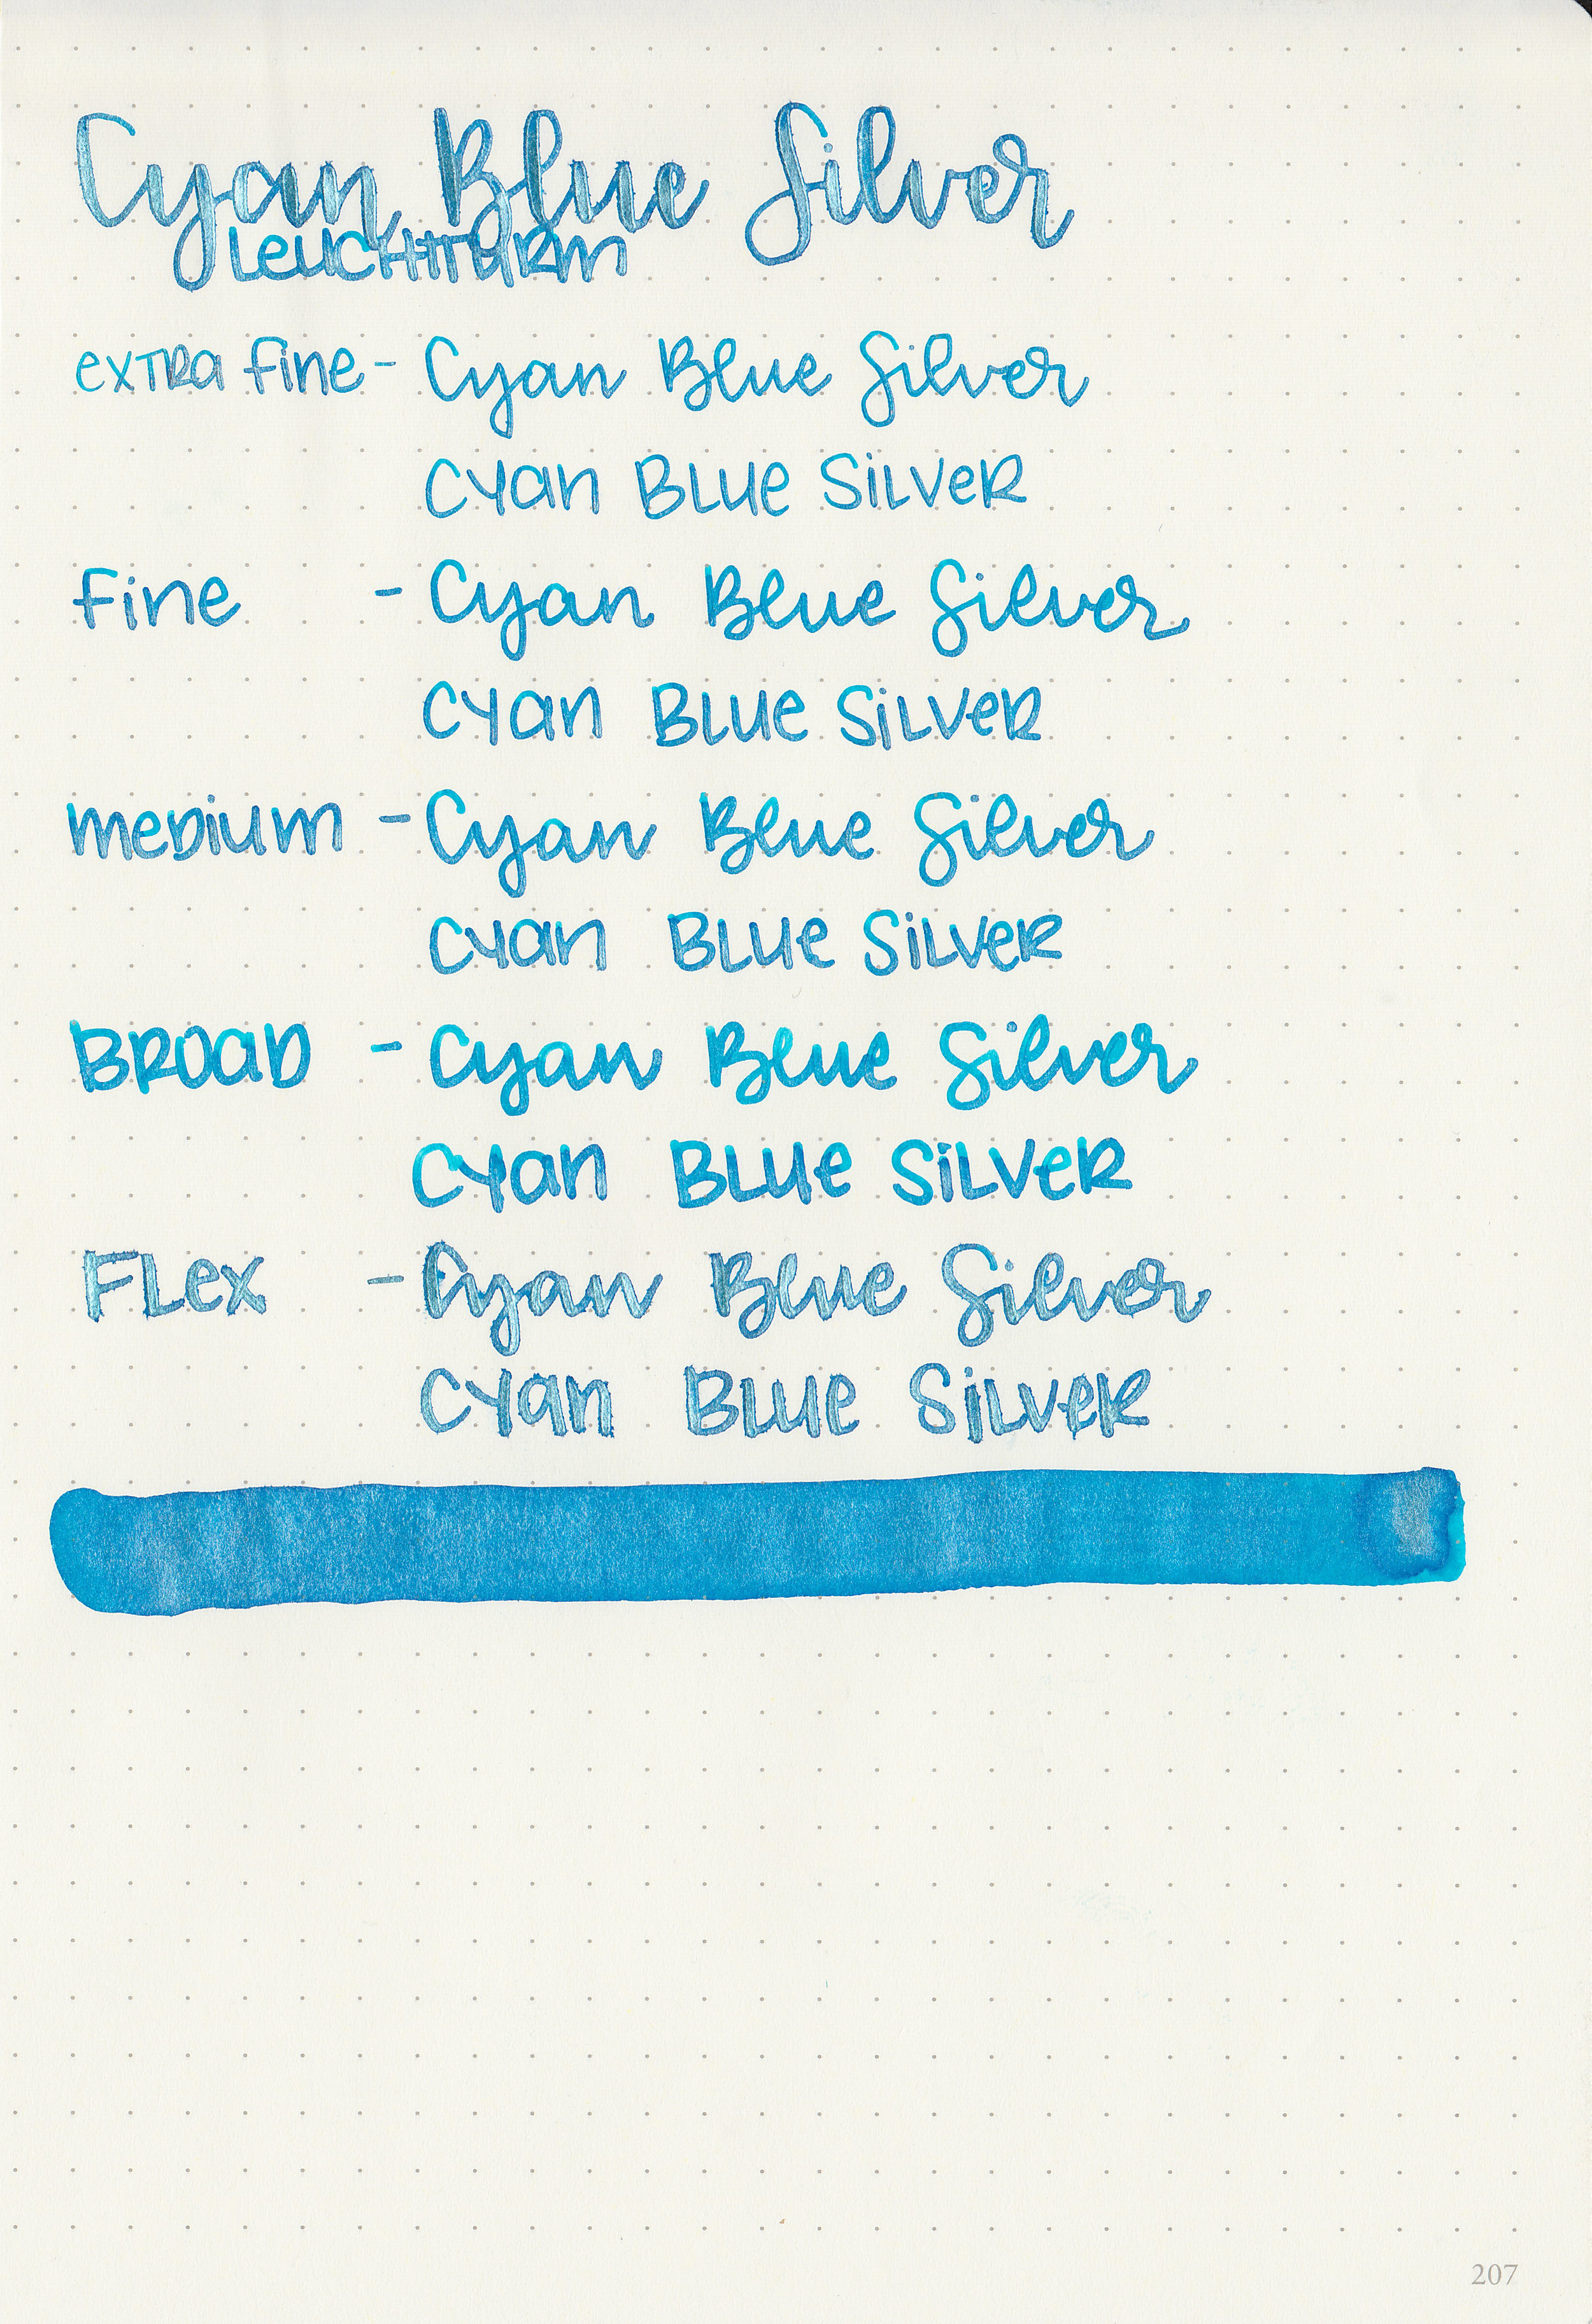 Cyan Blue Silver
LeUCHTTURm
exTRa fine - Cyan Blue Silver
CYan BLUe SiLVeR
Fine - Cyan Blue Silver
CYan BLUe SiLVeR
meDium - Cyan Blue Silver
CYan BLUe SiLVeR
BROaD - Cyan Blue Silver
CYan BLUe SiLVeR
FLex - Cyan Blue Silver
CYan BLUe SiLVeR
207